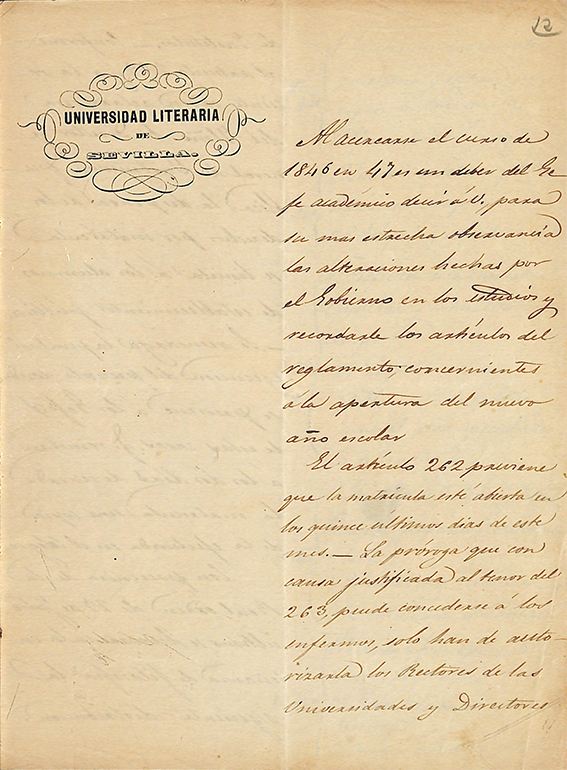 12
UNIVERSIDAD LITERARIA
DE
SEVILLA.
Al acercarse el curso de
1846 en 47 es un deber del Ge
fe académico decir á V. para
su mas estrecha observancia
las alteraciones hechas por
el Gobierno en los estudios y
recordarle los artículos del
reglamento, concernientes
á la apertura del nuevo
año escolar
El artículo 262 previene
que la matrícula esté abierta en
los quince ultimos dias de este
mes. — La próroga que con
causa justificada al tenor del
263, puede concederse á los
enfermos, solo han de auto-
rizarla los Rectores de las
Universidades y Directores